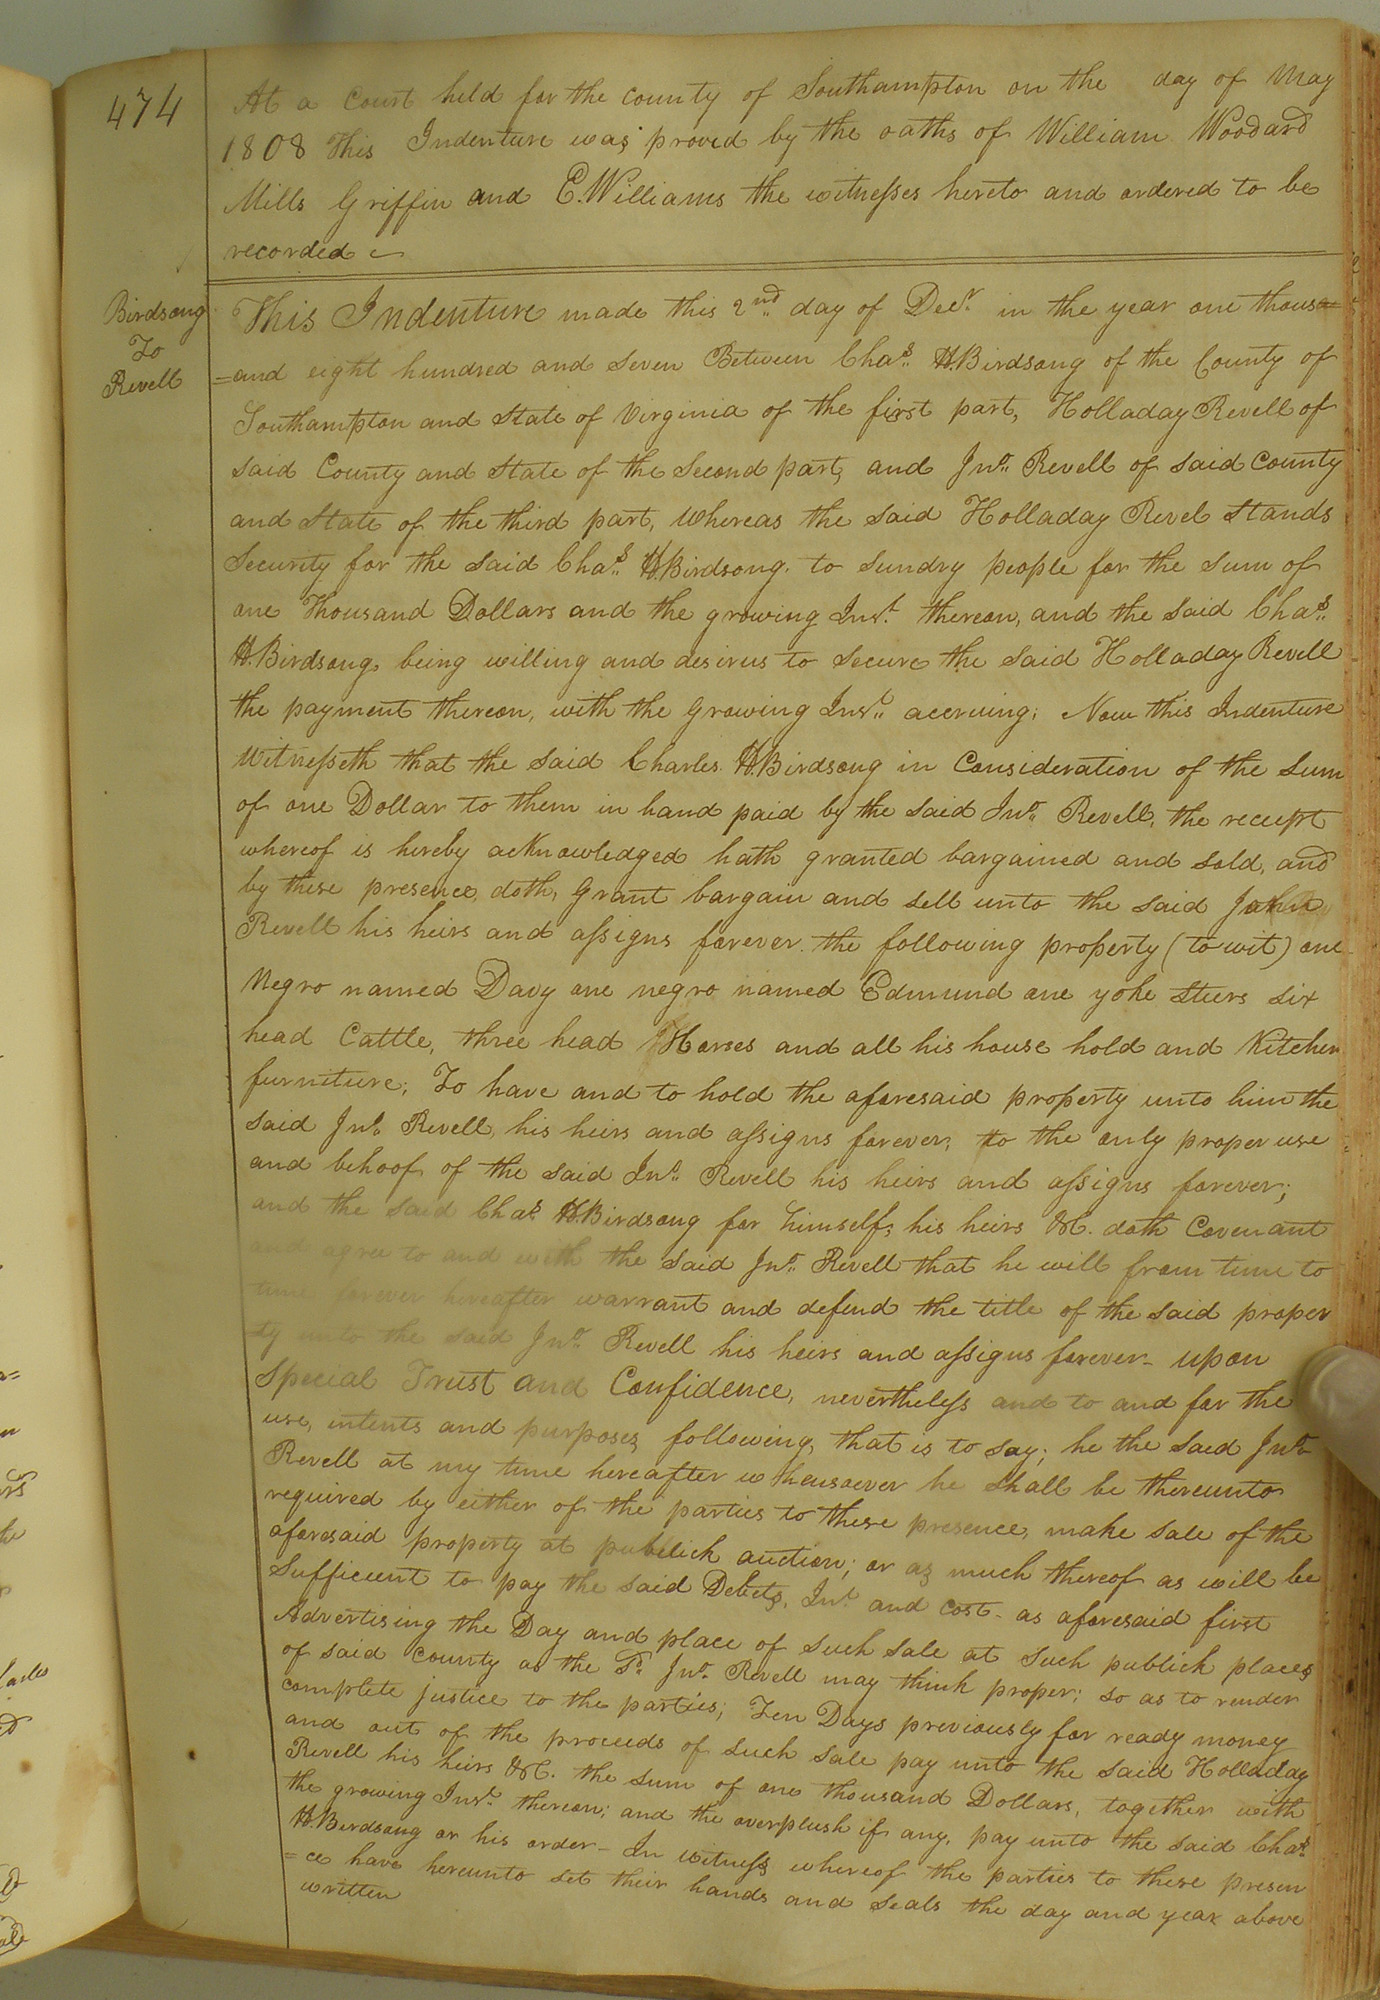 474
At a Court held for the county of Southampton on the day of May
1808 This Indenture was proved by the oaths of William Woodard
Mills Griffin and E. Williams the witnesses hereto and ordered to be
recorded
Birdsong
To
Revell
This Indenture made this 2nd day of Decr. in the year one thous
=and eight hundred and seven Between Chas. H. Birdsong of the County of
Southampton and State of Virginia of the first part, Holladay Revell of
said County and State of the Second part, and Jno. Revell of said County
and State of the third part, Whereas the said Holladay Revel stands
Security for the said Chas. H. Birdsong to sundry people for the sum of
one Thousand Dollars and the growing Inst. thereon, and the said Chas.
H. Birdsong being willing and desirus to secure the said Holladay Revell
the payment thereon, with the growing Inst. accruing; Now this Indenture
Witnesseth that the said Charles H. Birdsong in Consideration of the Sum
of one Dollar to them in hand paid by the said Jno. Revell, the receipt
whereof is hereby acknowledged hath granted bargained and sold, and
by these presence, doth, Grant bargain and sell unto the said John
Revell his heirs and assigns forever the following property (to wit) one
Negro named Davy one negro named Edmund one yoke steers six
head Cattle, three head Horses and all his house hold and Kitchen
furniture; To have and to hold the aforesaid property unto him the
said Jno. Revell, his heirs and assigns forever; to the only proper use
and behoof of the said Jno. Revell his heirs and assigns forever;
and the said Chas. H. Birdsong for himself, his heirs &C. doth Covenant
and agree to and with the said Jno. Revell that he will from time to
time forever hereafter warrant and defend the title of the said proper
ty unto the said Jno. Revell his heirs and assigns forever - upon
Special Trust and Confidence, nevertheless and to and for the
use, intents and purposes following, that is to say; he the said Jno.
Revell at my time hereafter whensoever he shall be thereunto
required by either of the parties to these presence, make sale of the
aforesaid property at publick auction; or as much thereof as will be
Sufficient to pay the said Debets, Int. and cost - as aforesaid first
Advertising the Day and place of such sale at such publick places
of said County as the Sd. Jno. Revell may think proper; so as to render
complete justice to the parties; Ten Days previously for ready money
and out of the proceeds of such sale pay unto the said Holladay
Revell his heirs &C. the sum of one thousand Dollars, together with
the growing Inst. thereon; and the overplush if any, pay unto the said Chas.
H. Birdsong or his order - In witness whereof the parties to these presen
=ce have hereunto set their hands and seals the day and year above
written